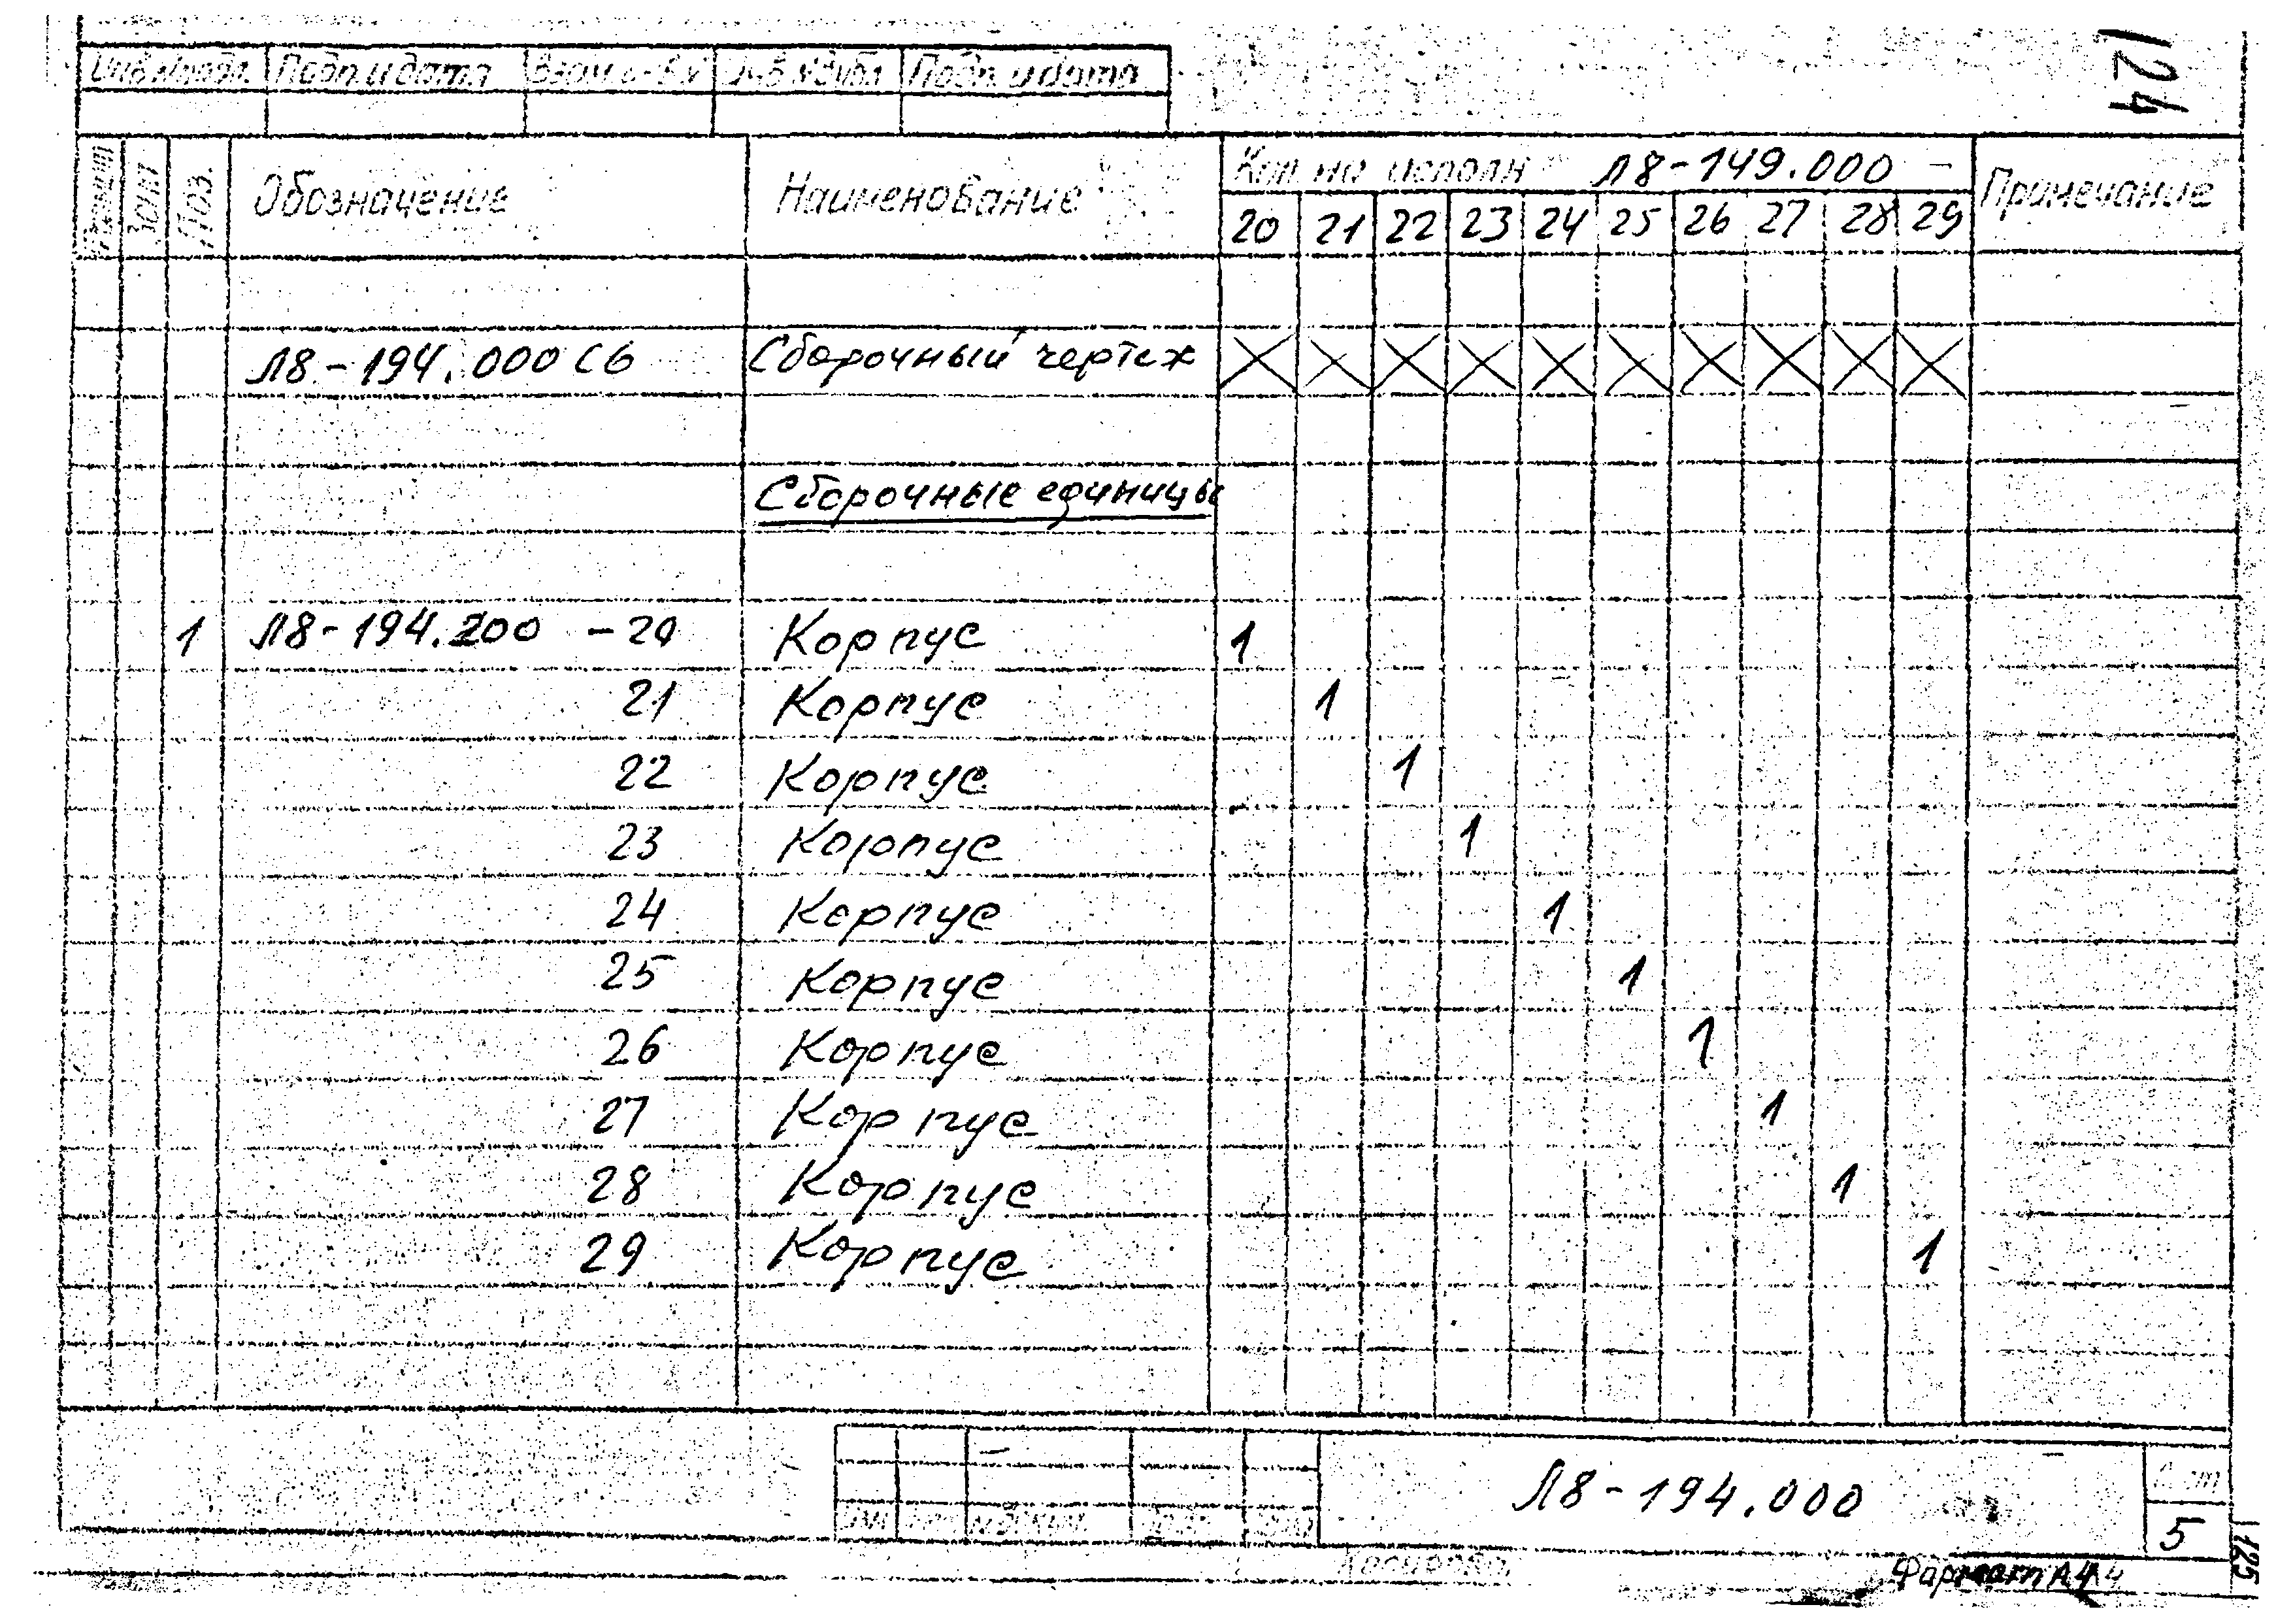 124
Инв.№подл. Подп. и дата Взам. инв.№ Инв.№дубл. Подп. и дата
Формат Зона Поз. Обозначение Наименование Кол. на исполн. Л8-149.000 - Примечание
20 21 22 23 24 25 26 27 28 29
Л8-194.000 СБ Сборочный чертеж
Сборочные единицы
1 Л8-194.200 -20 Корпус 1
21 Корпус 1
22 Корпус 1
23 Корпус 1
24 Корпус 1
25 Корпус 1
26 Корпус 1
27 Корпус 1
28 Корпус 1
29 Корпус 1
Л8-194.000
Лист
5
Копировал
Формат А4
125